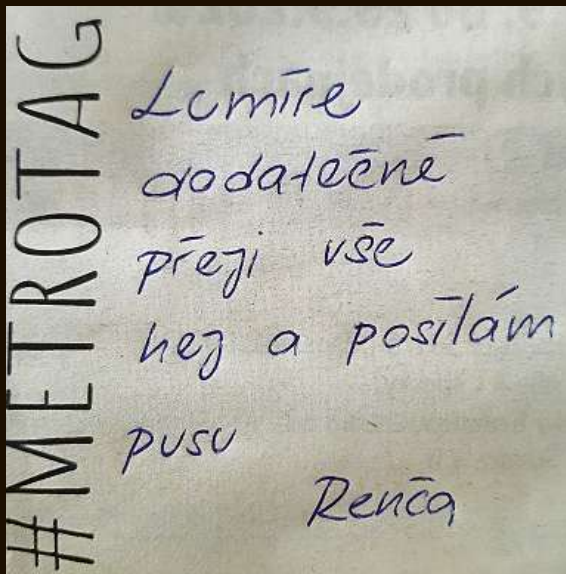 #METROTAG
Lumíre
dodatečně
přeji vše
nej a posílám
pusu
Renča